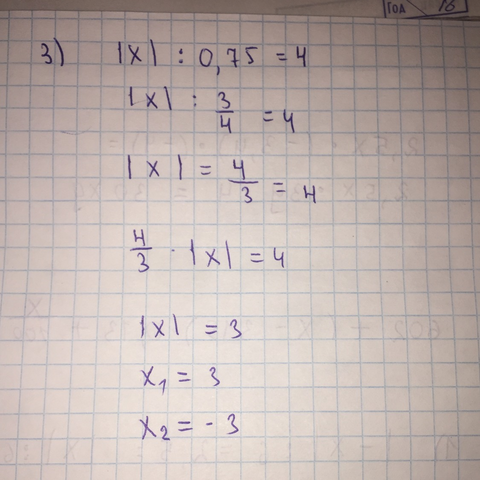 год 16
3) |x| : 0,75 = 4
|x| : 3/4 = 4
|x| = 4/3 = 4
4/3 · |x| = 4
|x| = 3
x₁ = 3
x₂ = - 3